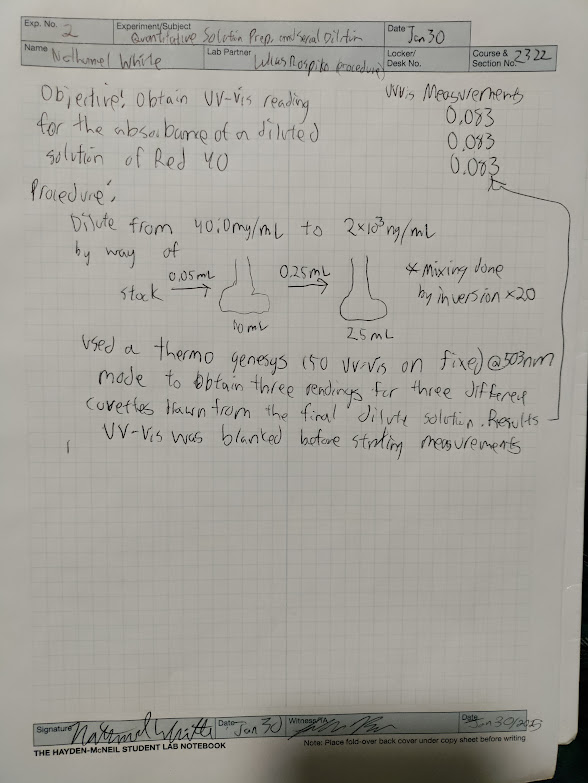 Exp. No. 2
Experiment/Subject Quantitative Solution Prep. and Serial Dilution
Date Jan 30
Name Nathaniel White
Lab Partner Lukas Rospito (procedure)
Locker/Desk No.
Course & Section No. 2322
Objective: Obtain UV-Vis reading
for the absorbance of a diluted
solution of Red 40
UVVis Measurements
0.083
0.083
0.083
Procedure:
Dilute from 40.0mg/mL to 2×10³ng/mL
by way of
stock
0.05mL
10mL
0.25mL
25mL
* Mixing done
by inversion ×20
Used a thermo genesys 150 UV-Vis on fixed @503nm
mode to obtain three readings for three different
cuvettes drawn from the final dilute solution. Results
UV-Vis was blanked before starting measurements
Signature Nathaniel White
Date Jan 30
Witness/TA
Date Jan 30/2025
THE HAYDEN-McNEIL STUDENT LAB NOTEBOOK
Note: Place fold-over back cover under copy sheet before writing